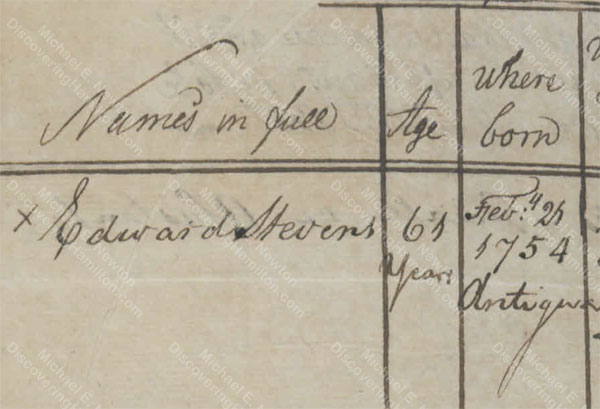 Names in full
Age
where
born
x Edward Stevens
61
Years
Feby. 21
1754
Antigua
Michael E. Newton
DiscoveringHamilton.com